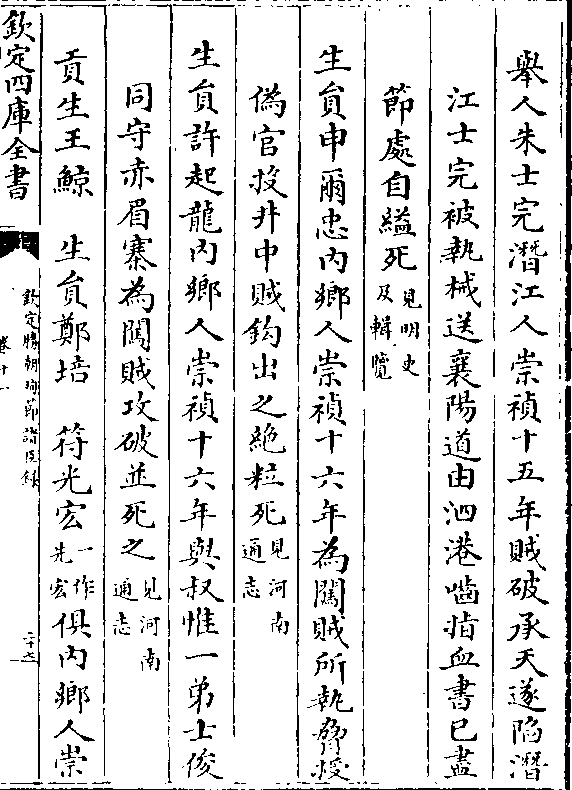 舉人朱士完潛江人崇禎十五年賊破承天遂陷潛
江士完被執械送襄陽道由泗港嚙指血書已盡
節處自縊死見明史
及輯覽
生員申爾忠内鄉人崇禎十六年為闖賊所執脅授
偽官投井中賊鈎出之絶粒死見河南
通志
生員許起龍内鄉人崇禎十六年與叔惟一弟士俊
同守赤眉寨為闖賊攻破並死之見河南
通志
貢生王鯨 生員鄭培 符光宏一作
先宏俱内鄉人崇
欽定四庫全書
欽定勝朝殉節諸臣録
卷十一